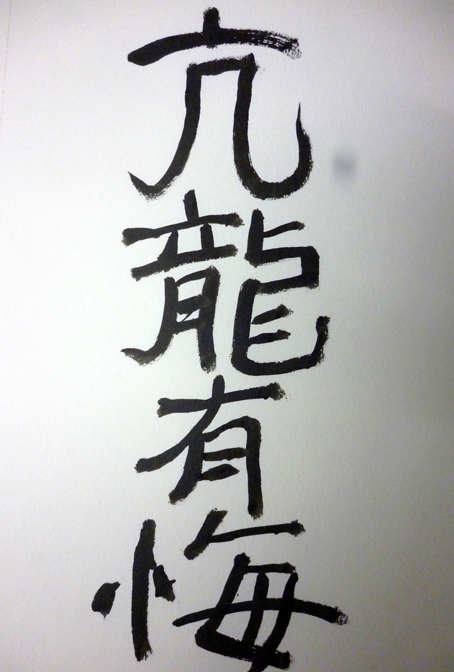 亢龍有悔